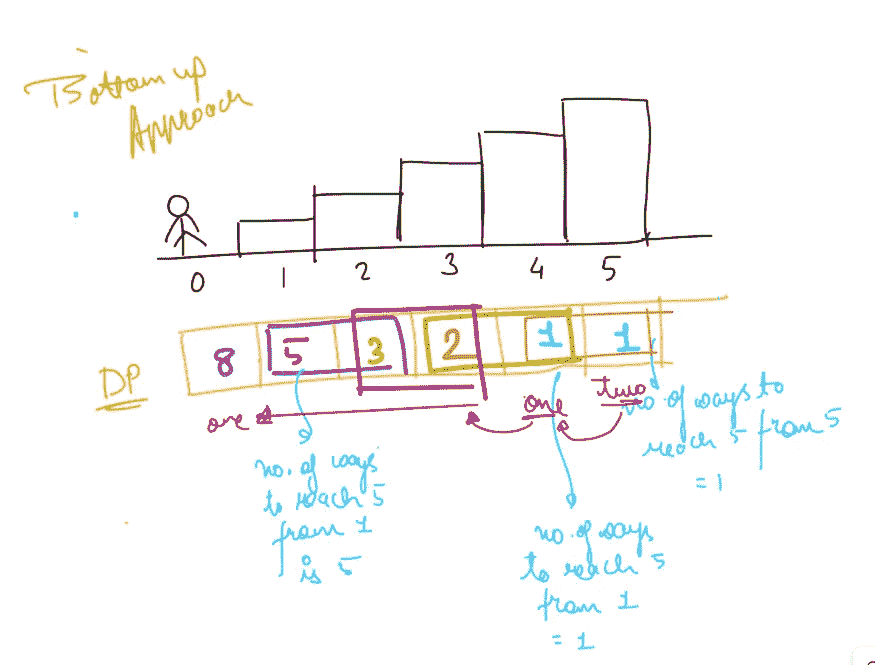 Bottom up
Approach
0 1 2 3 4 5
DP
8 5 3 2 1 1
one one two
no. of ways to
reach 5 from 5
= 1
no. of ways
to reach 5
from 1
is 5
no. of ways
to reach 5
from 1
= 1